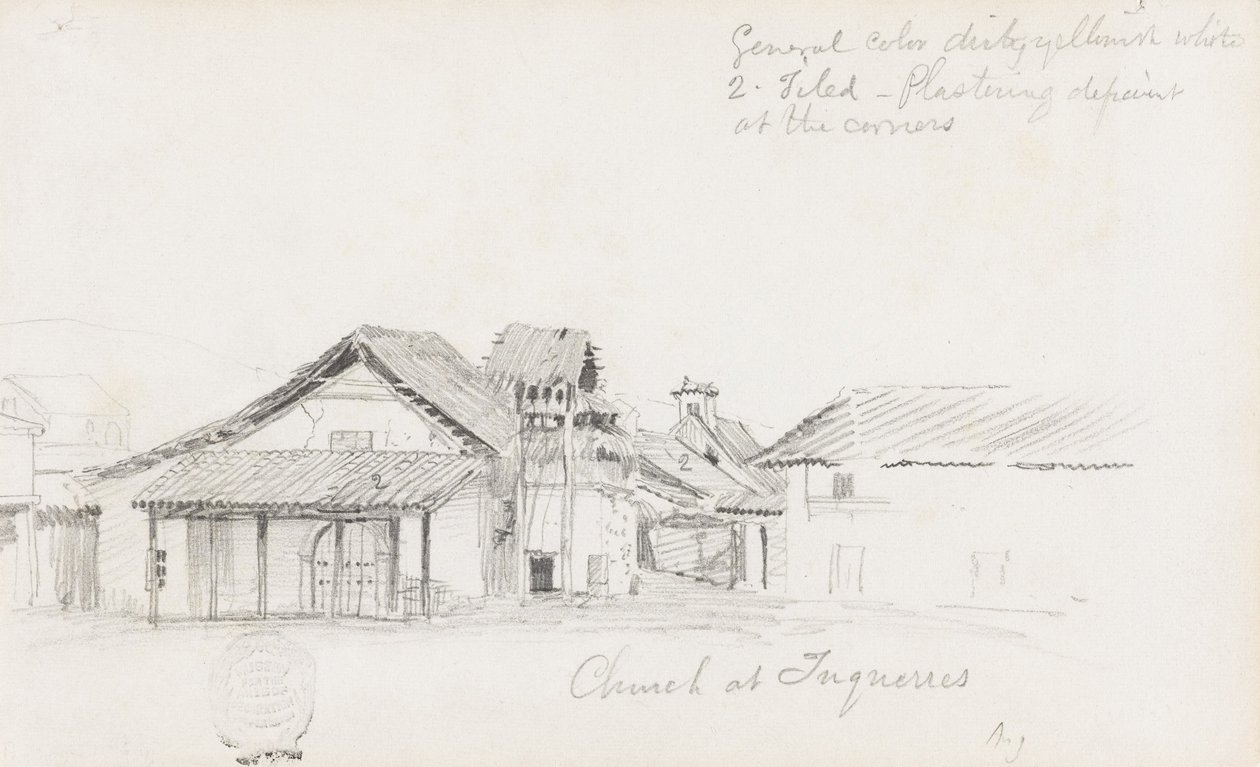 General color dirty yellowish white
2. Tiled - Plastering deficient
at the corners
2
2
Church at Tuquerres
Aug